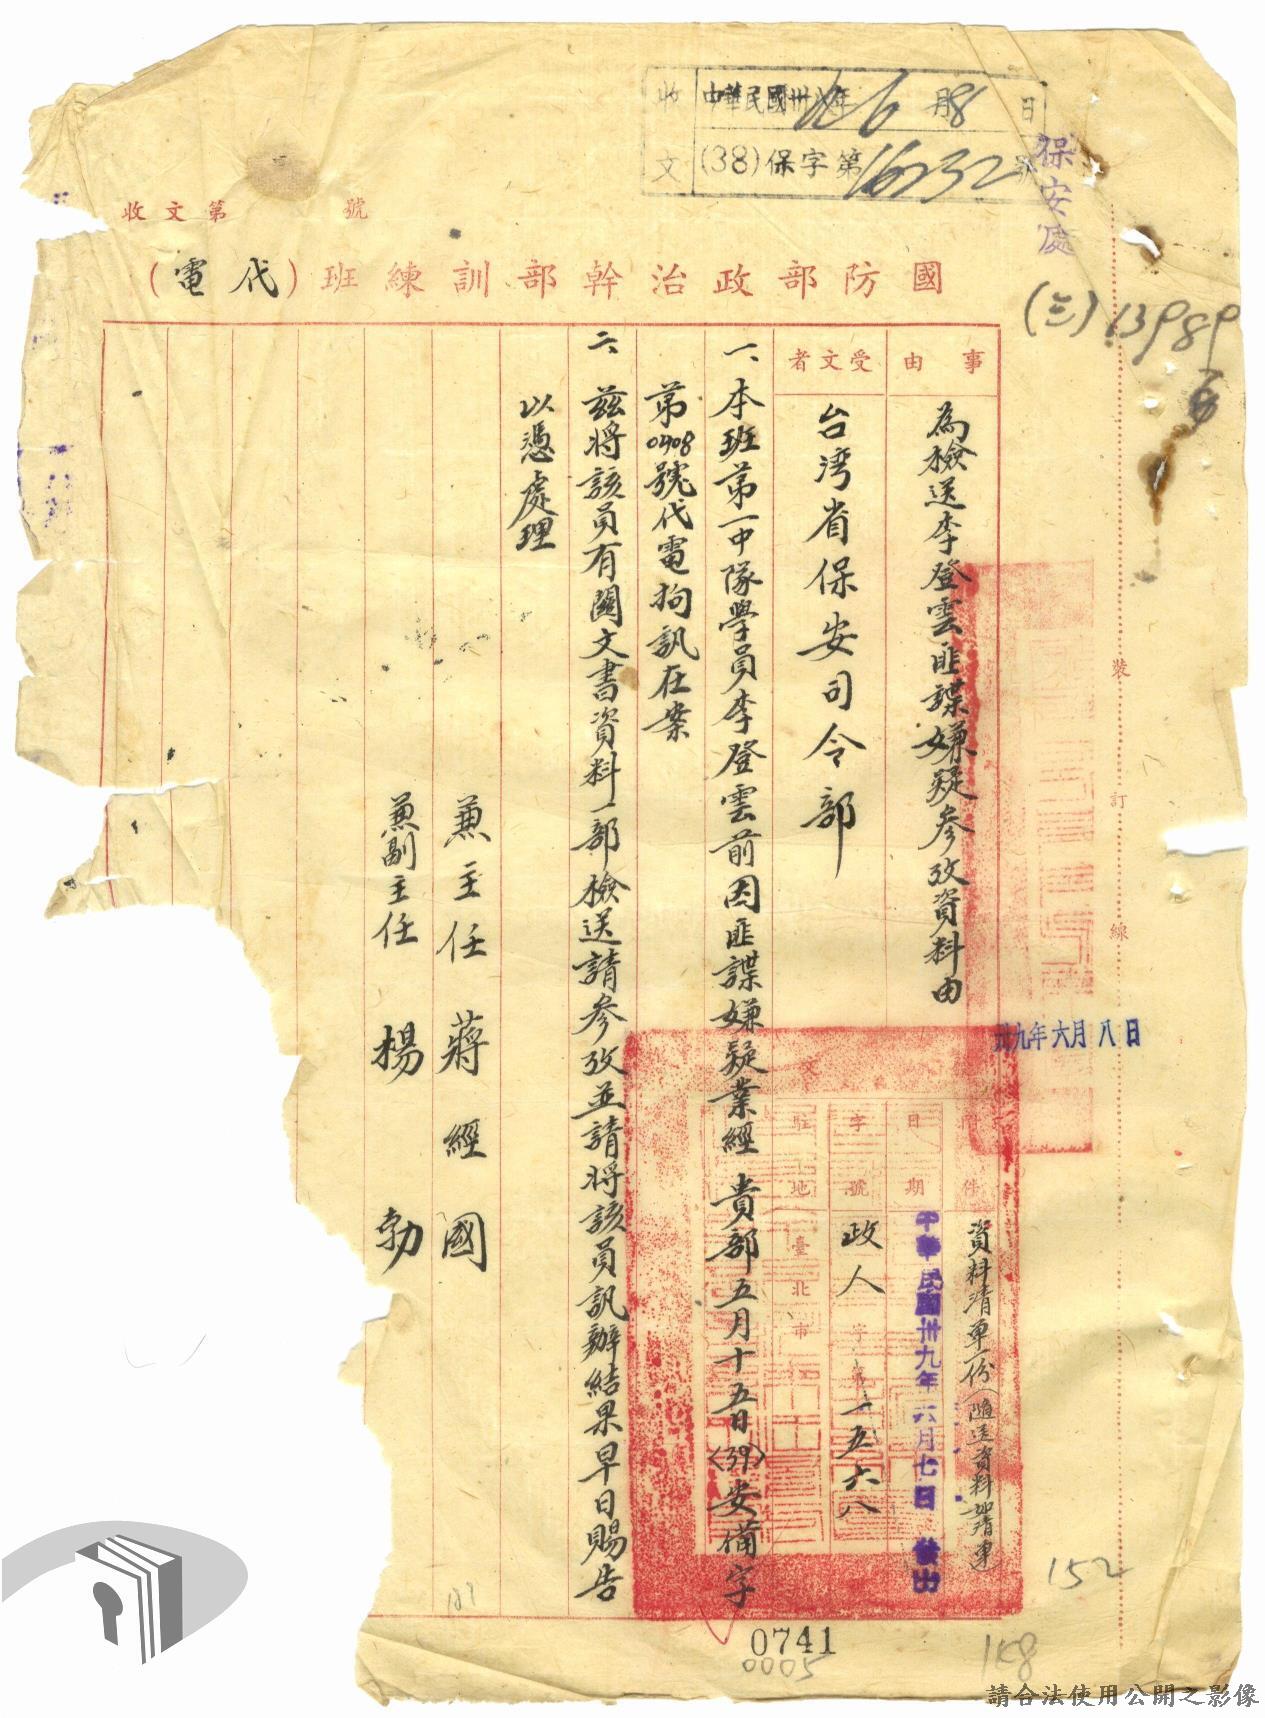 收文 中華民國卅八年 6月8日
(38)保字第16232號
保安處
收文第 號
國防部政治幹部訓練班(代電)
(三)13989
事由
為檢送李登雲匪諜嫌疑參攷資料由
受文者
台湾省保安司令部
一、本班第一中隊學員李登雲前因匪諜嫌疑業經 貴部五月十五日(39)安備字
第0408號代電拘訊在案
二、茲將該員有關文書資料一部檢送請參攷並請將該員訊辦結果早日賜告
以憑處理
兼主任 蔣經國
兼副主任 楊勃
件
資料清單一份(隨送資料如清單)
日期
中華民國卅九年六月七日 發出
字號
政人字第一五六八
駐地
臺北市
卅九年六月八日
裝訂線
152
0741
0005
158
請合法使用公開之影像